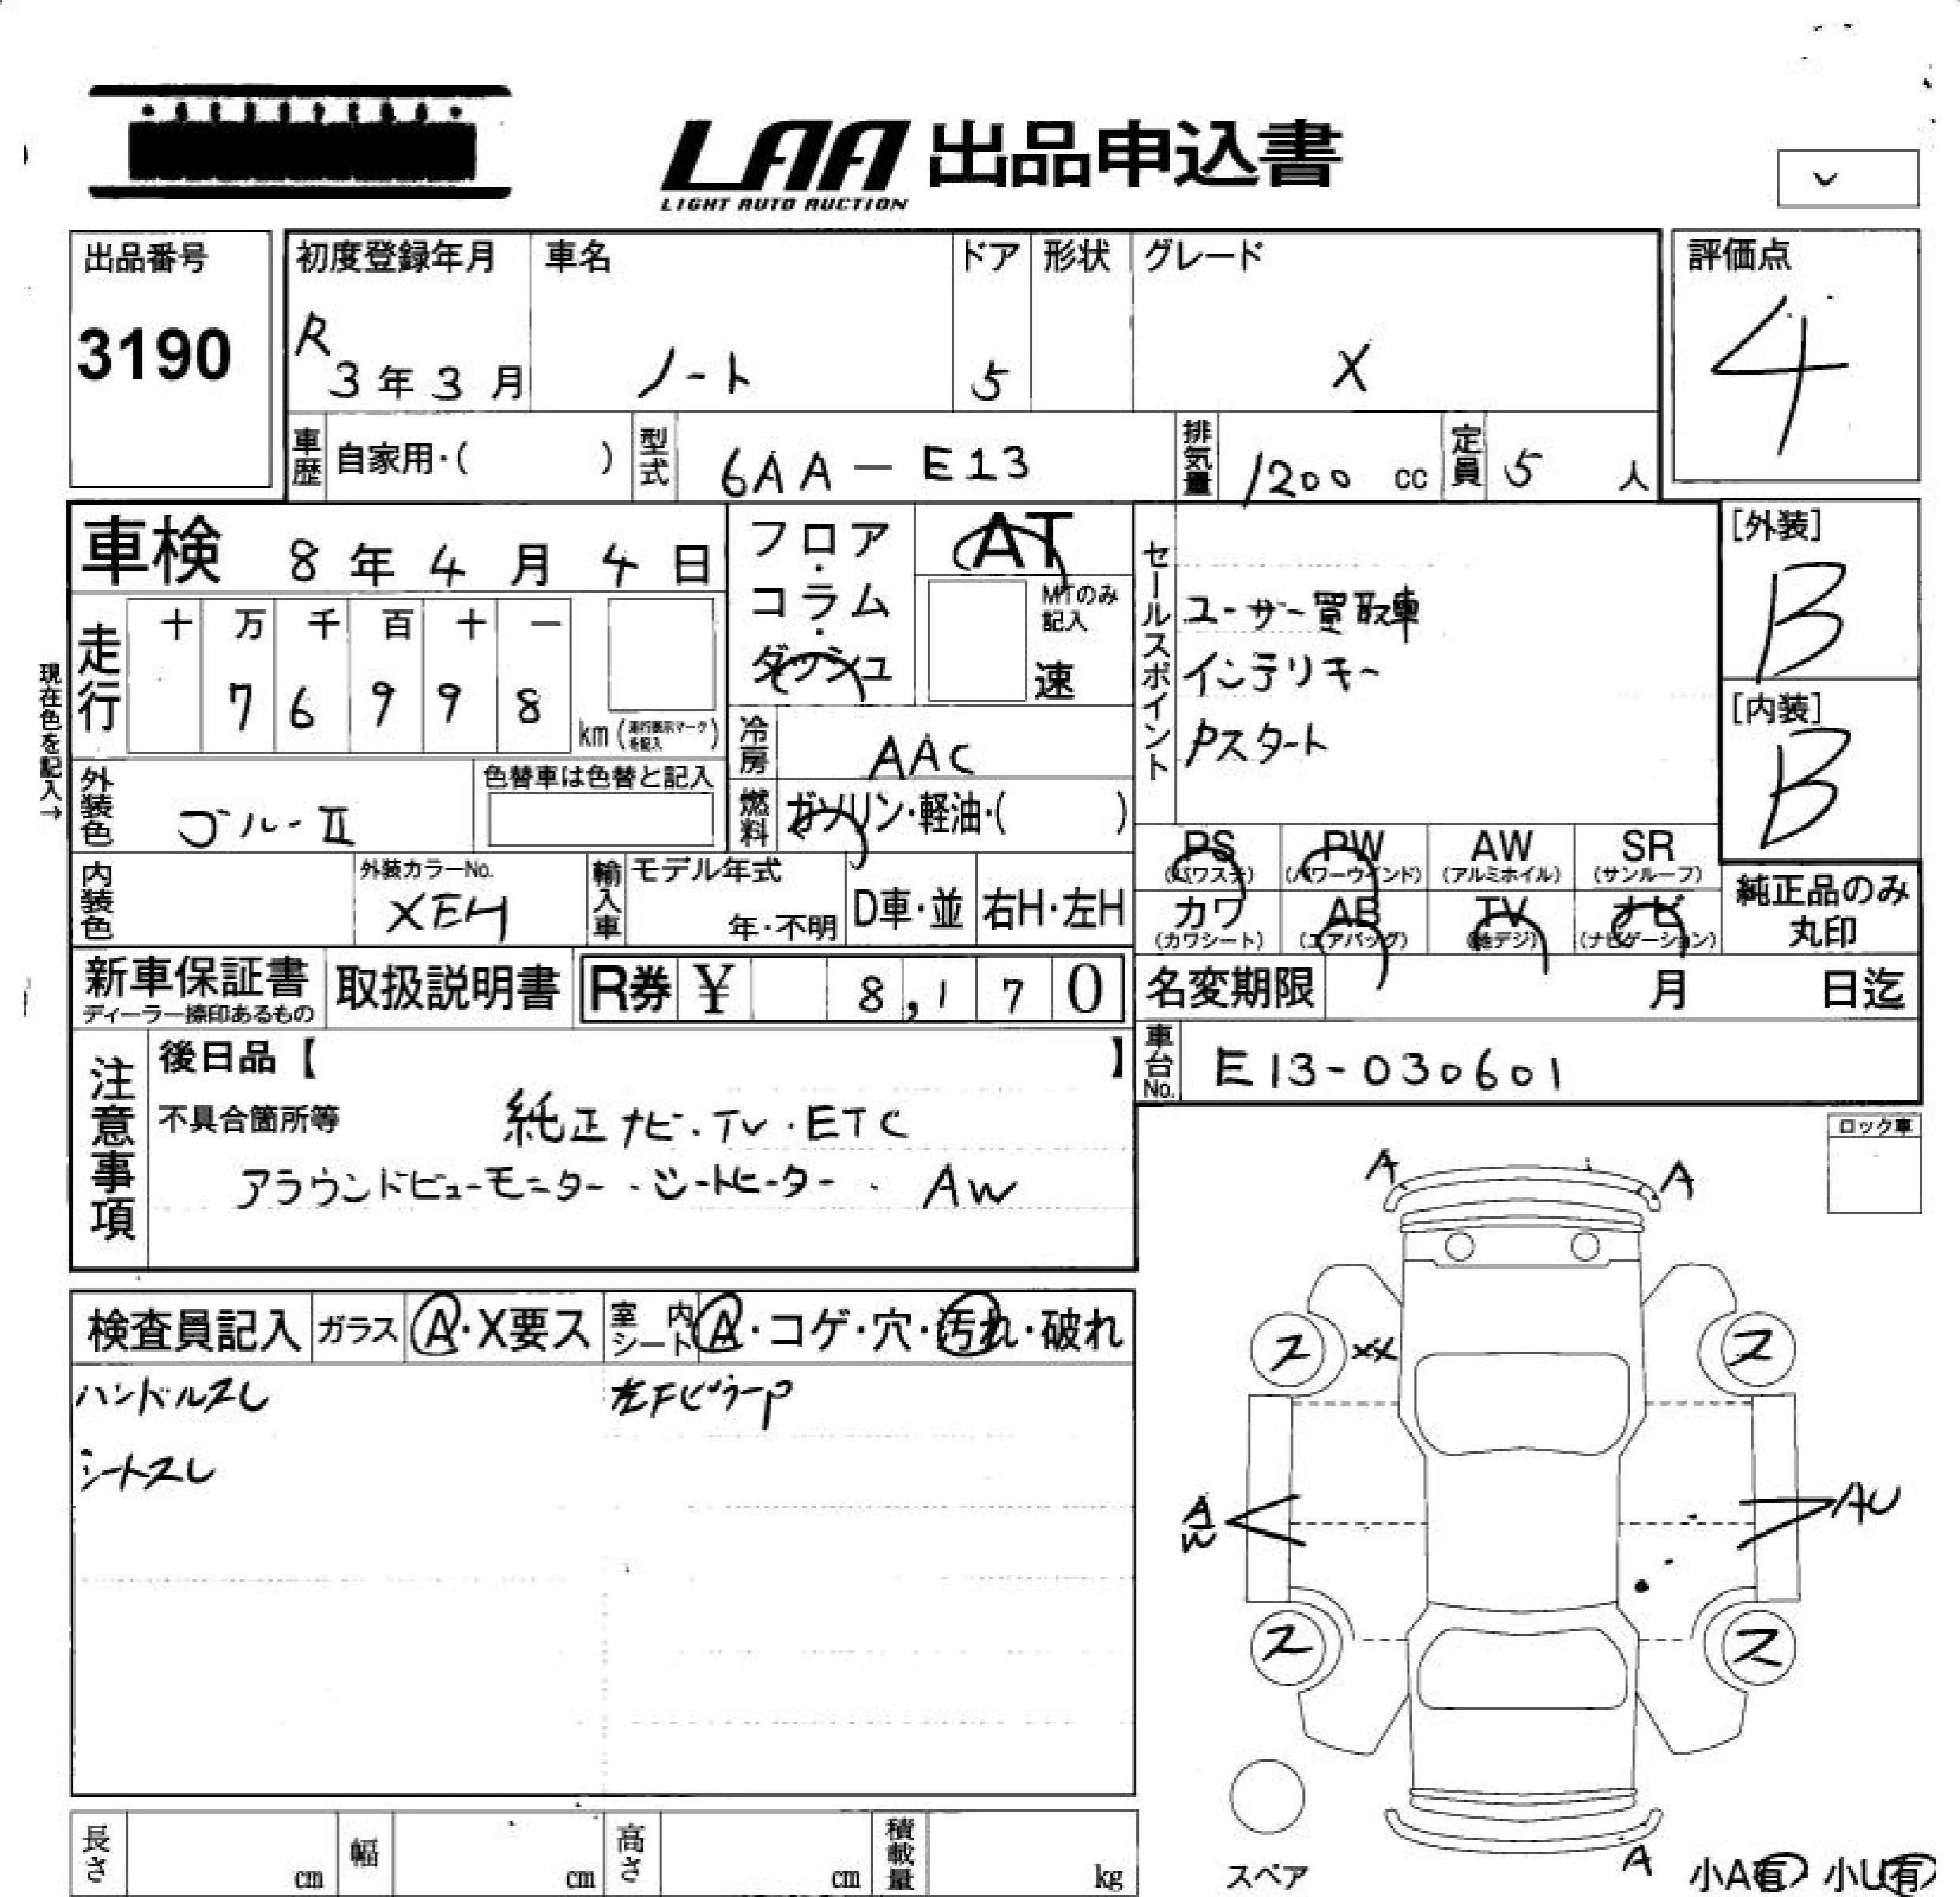 LAA 出品申込書
LIGHT AUTO AUCTION
出品番号
3190
初度登録年月
R
3年3月
車名
ノート
ドア
5
形状
グレード
X
評価点
4
車歴
自家用・( )
型式
6AA-E13
排気量
1200 cc
定員
5 人
車検 8年4月4日
走行
十 万 千 百 十 一
7 6 9 9 8
km (走行表示マークを記入)
現在色を記入→
フロア・コラム・ダッシュ
AT
MTのみ記入
速
冷房
AAC
燃料
ガソリン・軽油・( )
セールスポイント
ユーザー買取車
インテリキー
Pスタート
[外装]
B
[内装]
B
外装色
ゴルーⅡ
色替車は色替と記入
内装色
外装カラーNo.
XEH
輸入車
モデル年式
年・不明
D車・並
右H・左H
PS
(パワステ)
PW
(パワーウインド)
AW
(アルミホイル)
SR
(サンルーフ)
カワ
(カワシート)
AB
(エアバッグ)
TV
(地デジ)
ナビ
(ナビゲーション)
純正品のみ
丸印
新車保証書
ディーラー捺印あるもの
取扱説明書
R券 ¥ 8,170
名変期限 月 日迄
車台No.
E13-030601
注意事項
後日品【 】
不具合箇所等
純正ナビ・TV・ETC
アラウンドビューモニター・シートヒーター・AW
ロック車
検査員記入
ガラス
A・X要ス
室内シート
A・コゲ・穴・汚れ・破れ
ハンドルスレ
左FピラーP
シートスレ
A
A
ス
XX
ス
A
W
AU
ス
ス
スペア
A
小A有
小U有
長さ
cm
幅
cm
高さ
cm
積載量
kg